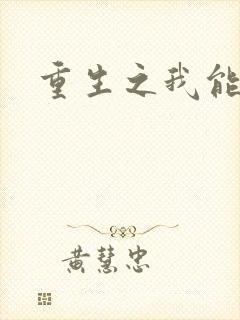 重生之我能
黄慧忠